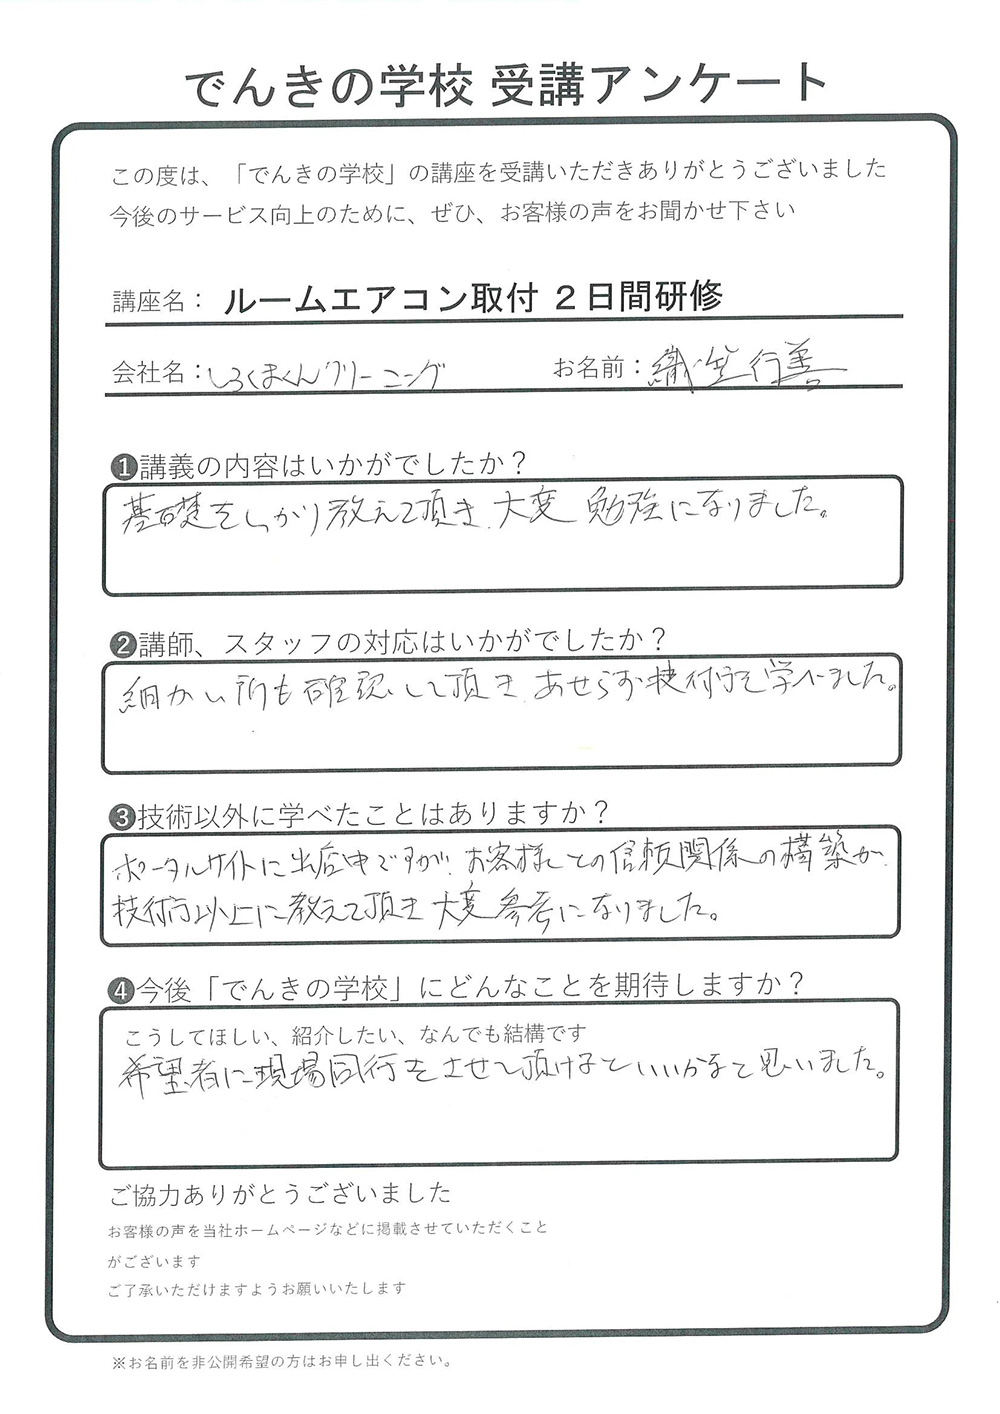 でんきの学校 受講アンケート
この度は、「でんきの学校」の講座を受講いただきありがとうございました
今後のサービス向上のために、ぜひ、お客様の声をお聞かせ下さい
講座名： ルームエアコン取付 ２日間研修
会社名：しろくまくんクリーニング お名前：織笠 行善
❶講義の内容はいかがでしたか？
基礎をしっかり教えて頂き、大変 勉強になりました。
❷講師、スタッフの対応はいかがでしたか？
細かい所も確認して頂き、あせらず技術を学べました。
❸技術以外に学べたことはありますか？
ポータルサイトに出店中ですが、お客様との信頼関係の構築が、
技術以上に教えて頂き大変参考になりました。
❹今後「でんきの学校」にどんなことを期待しますか？
こうしてほしい、紹介したい、なんでも結構です
希望者に現場同行をさせて頂けるといいかなと思いました。
ご協力ありがとうございました
お客様の声を当社ホームページなどに掲載させていただくこと
がございます
ご了承いただけますようお願いいたします
※お名前を非公開希望の方はお申し出ください。